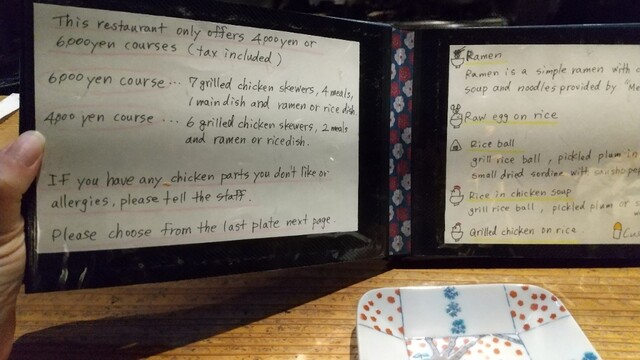 This restaurant only offers 4,000yen or
6,000yen courses (tax included)
6,000yen course ... 7 grilled chicken skewers, 4 meals,
1 main dish and ramen or rice dish.
4,000 yen course ... 6 grilled chicken skewers, 2 meals
and ramen or ricedish.
IF you have any chicken parts you don't like or
allergies, please tell the staff.
Please choose from the last plate next page.
Ramen
Ramen is a simple ramen with c
soup and noodles provided by "Me
Raw egg on rice
Rice ball
grill rice ball, pickled plum in
small dried sardine with sansho pep
Rice in chicken soup
grill rice ball, pickled plum or s
Grilled chicken on rice
Cus